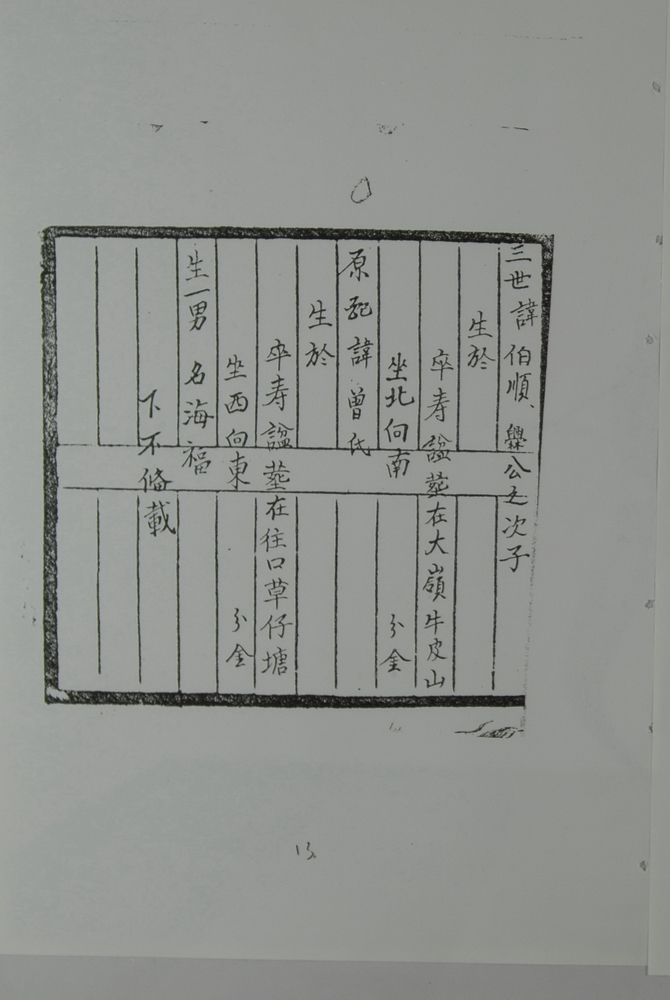 三世諱伯順、舉公之次子
生於
卒寿諡塟在大嶺牛皮山
坐北向南 分金
原配諱曾氏
生於
卒寿諡塟在往口草仔塘
坐西向東 分金
生一男 名海福
下不俻載
13